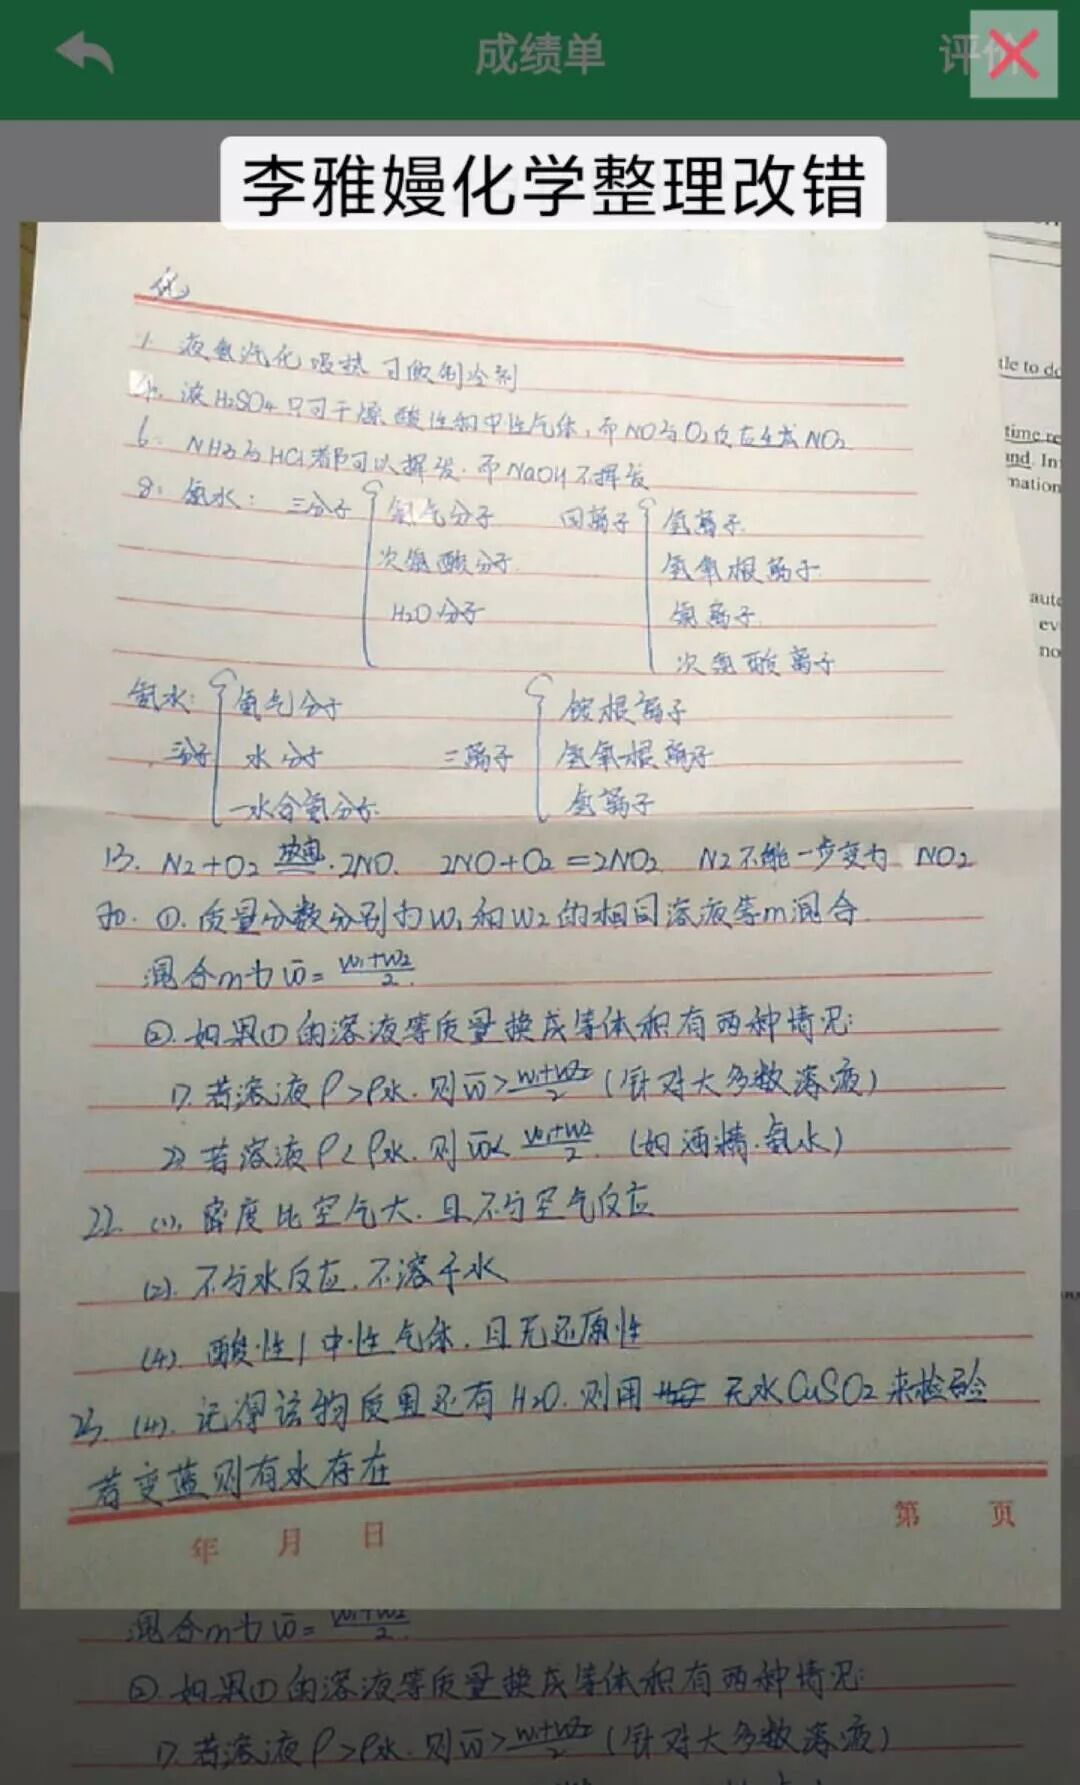 成绩单
评价
李雅嫚化学整理改错
化
1. 液氨汽化吸热 可做制冷剂
4. 浓H₂SO₄只可干燥酸性和中性气体,而NO与O₂反应生成NO₂
6. NH₃与HCl都可以挥发.而NaOH不挥发
8. 氯水: 三分子 氯气分子 四离子 氢离子.
次氯酸分子. 氢氧根离子.
H₂O分子 氯离子.
次氯酸离子
氨水: 氨气分子 铵根离子
三分子 水分子 三离子 氢氧根离子.
一水合氨分子. 氢离子
13. N₂+O₂ 放电 2NO. 2NO+O₂=2NO₂ N₂不能一步变为 NO₂
①. 质量分数分别为W₁和W₂的相同溶液等m混合.
混合m为 w̄= w₁+w₂/2.
②.如果①的溶液等质量换成等体积有两种情况:
1). 若溶液ρ>ρ水.则w̄>w₁+w₂/2 (针对大多数溶液)
2) 若溶液ρ<ρ水.则w̄< w₁+w₂/2. (如酒精.氨水)
22. (1). 密度比空气大.且不与空气反应
(2). 不与水反应.不溶于水
(4). 酸性/中性气体.且无还原性
23. (4). 记得该物质里还有H₂O.则用 无水CuSO₂来检验
若变蓝则有水存在
年 月 日 第 页
混合m为 w̄= w₁+w₂/2.
②.如果①的溶液等质量换成等体积有两种情况:
1). 若溶液ρ>ρ水.则w̄>w₁+w₂/2 (针对大多数溶液)